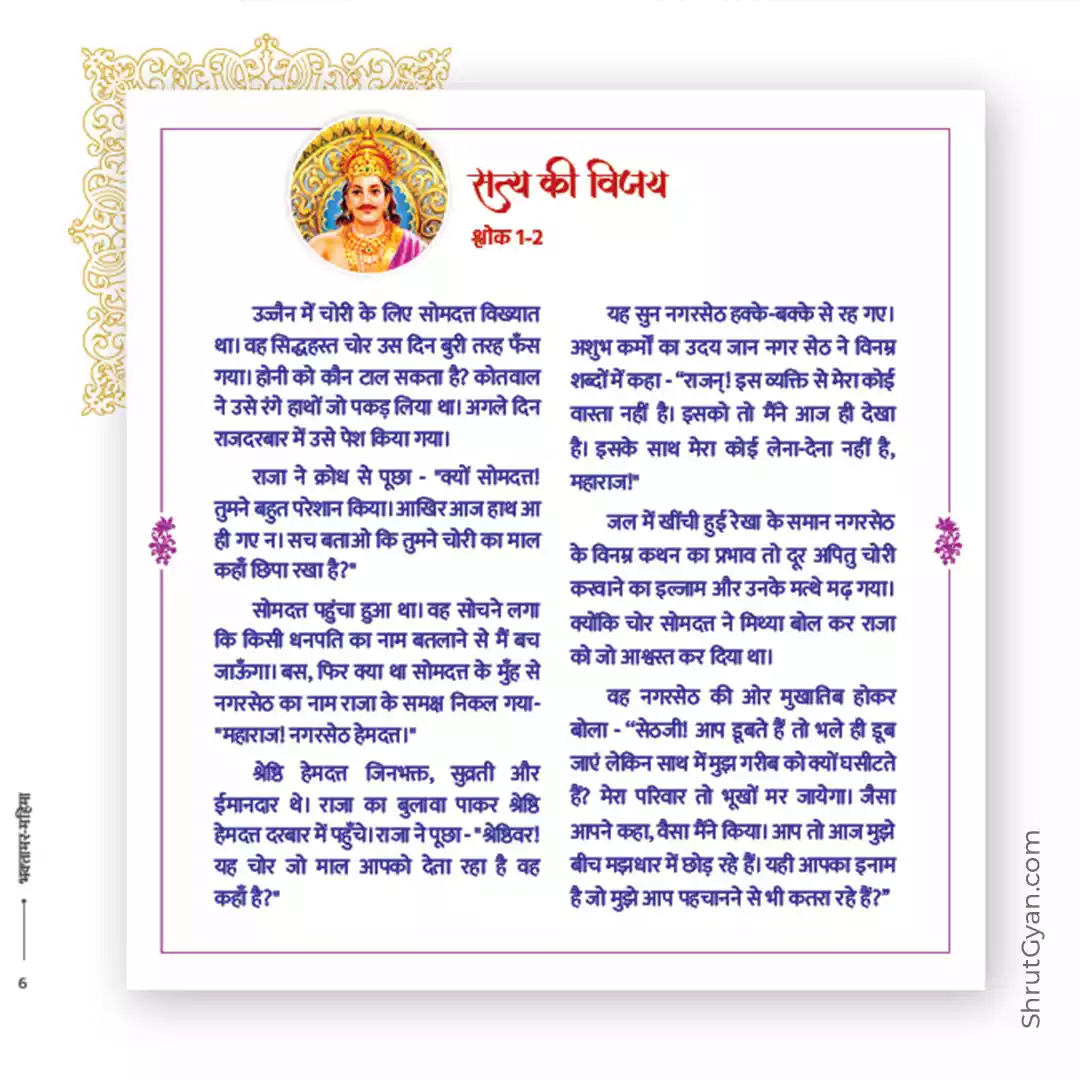 सत्य की विजय
श्लोक 1-2
उज्जैन में चोरी के लिए सोमदत्त विख्यात
था। वह सिद्धहस्त चोर उस दिन बुरी तरह फँस
गया। होनी को कौन टाल सकता है? कोतवाल
ने उसे रंगे हाथों जो पकड़ लिया था। अगले दिन
राजदरबार में उसे पेश किया गया।
राजा ने क्रोध से पूछा - "क्यों सोमदत्त!
तुमने बहुत परेशान किया। आखिर आज हाथ आ
ही गए न। सच बताओ कि तुमने चोरी का माल
कहाँ छिपा रखा है?"
सोमदत्त पहुंचा हुआ था। वह सोचने लगा
कि किसी धनपति का नाम बतलाने से मैं बच
जाऊँगा। बस, फिर क्या था सोमदत्त के मुँह से
नगरसेठ का नाम राजा के समक्ष निकल गया-
"महाराज! नगरसेठ हेमदत्त।"
श्रेष्ठि हेमदत्त जिनभक्त, सुव्रती और
ईमानदार थे। राजा का बुलावा पाकर श्रेष्ठि
हेमदत्त दरबार में पहुँचे। राजा ने पूछा - "श्रेष्ठिवर!
यह चोर जो माल आपको देता रहा है वह
कहाँ है?"
यह सुन नगरसेठ हक्के-बक्के से रह गए।
अशुभ कर्मों का उदय जान नगर सेठ ने विनम्र
शब्दों में कहा - “राजन्! इस व्यक्ति से मेरा कोई
वास्ता नहीं है। इसको तो मैंने आज ही देखा
है। इसके साथ मेरा कोई लेना-देना नहीं है,
महाराज!"
जल में खींची हुई रेखा के समान नगरसेठ
के विनम्र कथन का प्रभाव तो दूर अपितु चोरी
करवाने का इल्जाम और उनके मत्थे मढ़ गया।
क्योंकि चोर सोमदत्त ने मिथ्या बोल कर राजा
को जो आश्वस्त कर दिया था।
वह नगरसेठ की ओर मुखातिब होकर
बोला - “सेठजी! आप डूबते हैं तो भले ही डूब
जाएं लेकिन साथ में मुझ गरीब को क्यों घसीटते
हैं? मेरा परिवार तो भूखों मर जायेगा। जैसा
आपने कहा, वैसा मैंने किया। आप तो आज मुझे
बीच मझधार में छोड़ रहे हैं। यही आपका इनाम
है जो मुझे आप पहचानने से भी कतरा रहे हैं?”
भक्तामर-महिमा
6
ShrutGyan.com